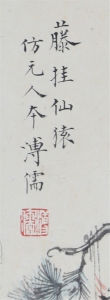 藤挂仙猿
仿元人本溥儒